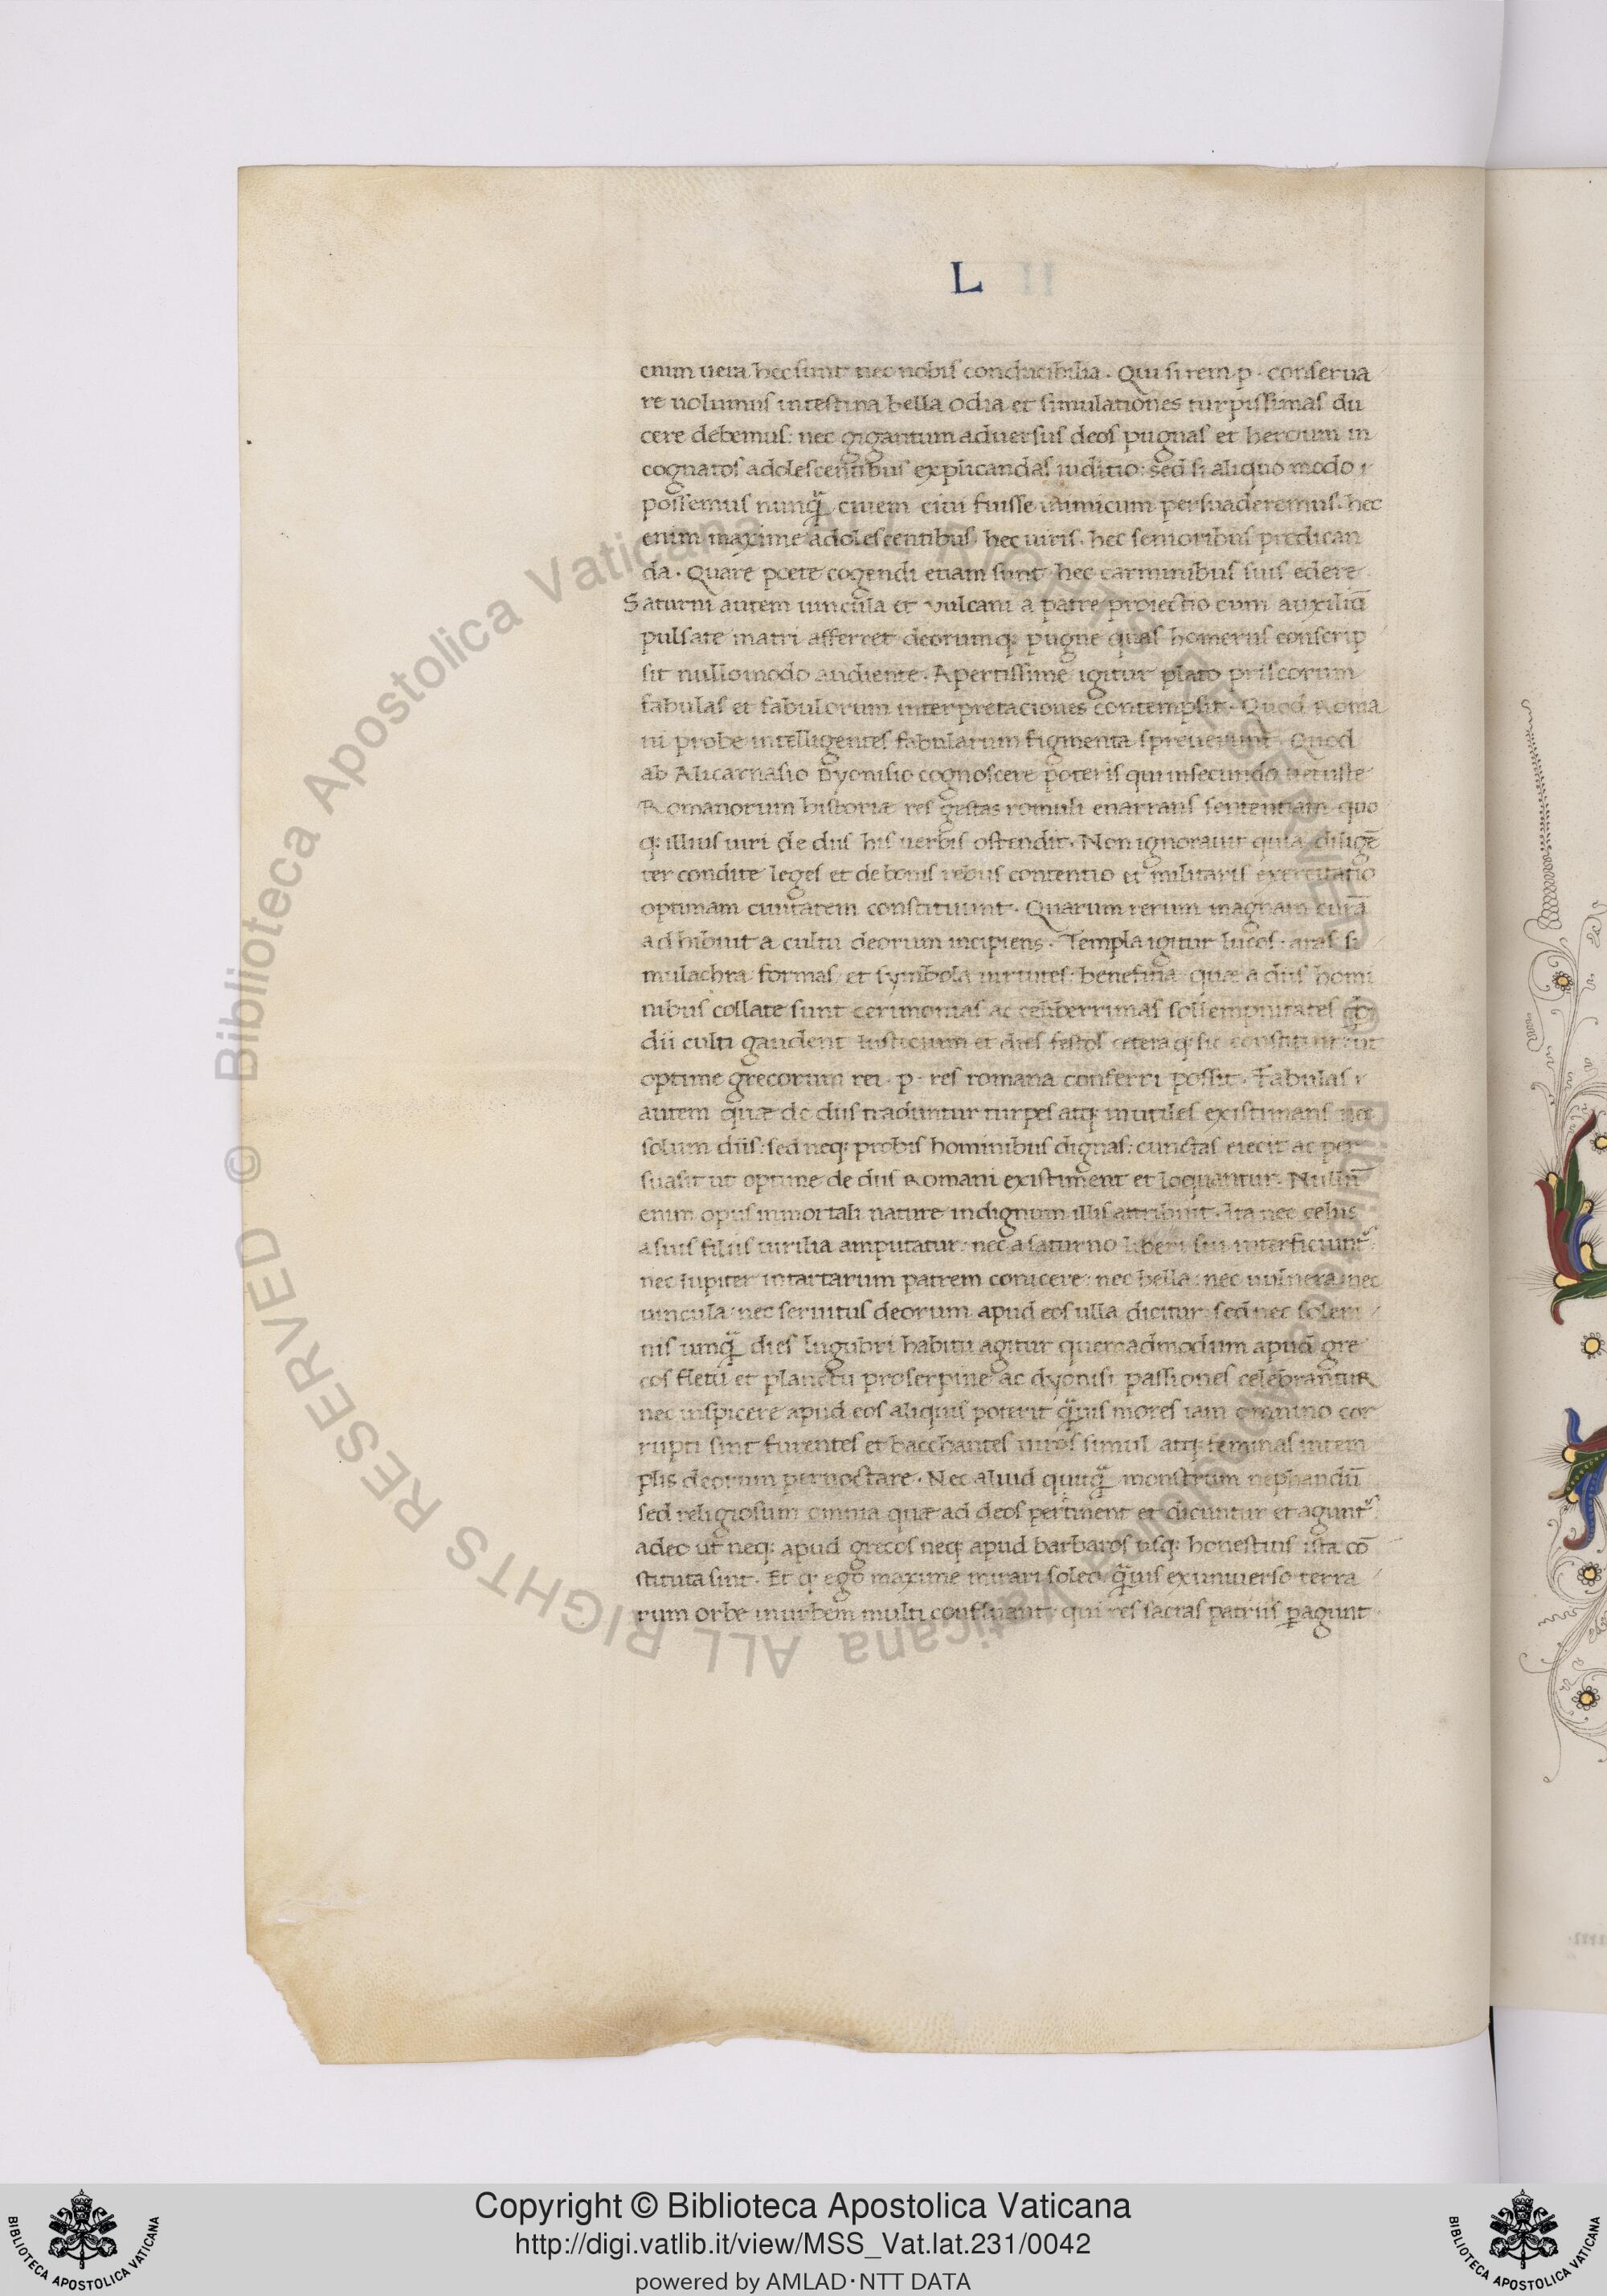 L
enim uera hec sunt nec nobis conducibilia. Qui si rem .p. conserua
re uolumus intestina bella odia et simulationes turpissimas du
cere debemus: nec gigantum aduersus deos pugnas et heroum in
cognatos adolescentibus explicandas iuditio: sed si aliquo modo
possemus nunq̃ ciuem ciui fuisse inimicum persuaderemus. hec
enim maxime adolescentibus hec uiris. hec senioribus predican
da. Quare poete cogendi etiam sunt hec carminibus suis edere
Saturni autem uincula et vulcani a patre proiectio cum auxiliũ
pulsate matri afferret deorumq; pugne quas homerus conscrip
sit nullomodo audiente. Apertissime igitur plato priscorum
fabulas et fabulorum interpretaciones contempsit. Quod Roma
ni probe intelligentes fabularum figmenta spreuerunt. Quod
ab Alicarnasio Dyonisio cognoscere poteris qui insecundo uetuste
Romanorum historiæ res gestas romuli enarrans sententiam quo
q; illius uiri de diis his uerbis ostendit. Non ignorauit quia diligẽ
ter condite leges et de bonis rebus contentio et militaris exercitatio
optimam ciuitatem constituunt. Quarum rerum magnam curã
adhibuit a cultu deorum incipiens. Templa igitur lucos. aras si
mulachra formas et symbola uirtutes. benefitia quæ a diis homi
nibus collate sunt cerimonias ac celiberrimas sollempnitates
dii culti gaudent Iusticium et dies festos cetera q; sic constituit ut
optime grecorum rei .p. res romana conferri possit. Fabulas
autem quæ de diis traduntur turpes atq; inutiles existimans nec
solum diis: sed neq; probis hominibus dignas: cunctas eiecit ac per
suasit ut optime de diis Romani existiment et loquantur. Nullũ
enim opus inmortali nature indignum illis attribuit. Ita nec celus
a suis filiis uirilia amputatur: nec a saturno liberi sui interficiunt᷑
nec Iupiter intartarum patrem conicere: nec bella: nec uulnera nec
uincula: nec seruitus deorum apud eos ulla dicitur: sed nec solem
nis unq̃ dies lugubri habitu agitur quemadmodum apud gre
cos fletu et planctu proserpine ac dyonisi passiones celebrantur
nec inspicere apud eos aliquis poterit q̃uis mores iam omnino cor
rupti sint furentes et bacchantes uiros simul atq; feminas intem
plis deorum pernoctare. Nec aliud quicq̃ monstrum nephandũ
sed religiosum omnia quæ ad deos pertinent et dicuntur et agunt᷑
adeo ut neq; apud grecos neq; apud barbaros usq; honestius ista cõ
stituta sint. Et q ego maxime mirari soleo q̃uis ex uniuerso terra
rum orbe inurbem multi confluant qui res sacras patriis pagunt
© Biblioteca Apostolica Vaticana ALL RIGHTS RESERVED
© Biblioteca Apostolica Vaticana ALL RIGHTS RESERVED
BIBLIOTECA APOSTOLICA VATICANA
Copyright © Biblioteca Apostolica Vaticana
http://digi.vatlib.it/view/MSS_Vat.lat.231/0042
powered by AMLAD·NTT DATA
BIBLIOTECA APOSTOLICA VATICANA